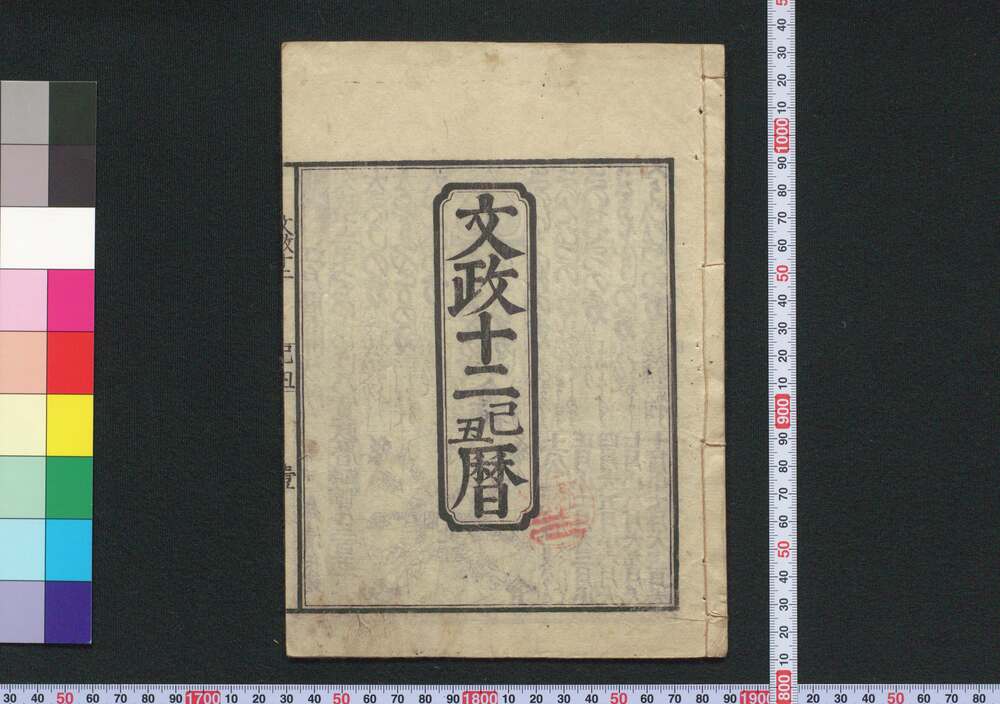 文政十二己丑暦
文政十二
己丑
壹
50
40
30
20
10
1000
90
80
70
60
50
40
30
20
10
900
90
80
70
60
50
40
30
20
10
800
30 40 50 60 70 80 90 1700 10 20 30 40 50 60 70 80 90 1800 10 20 30 40 50 60 70 80 90 1900 20 30 40 50 60 70 80